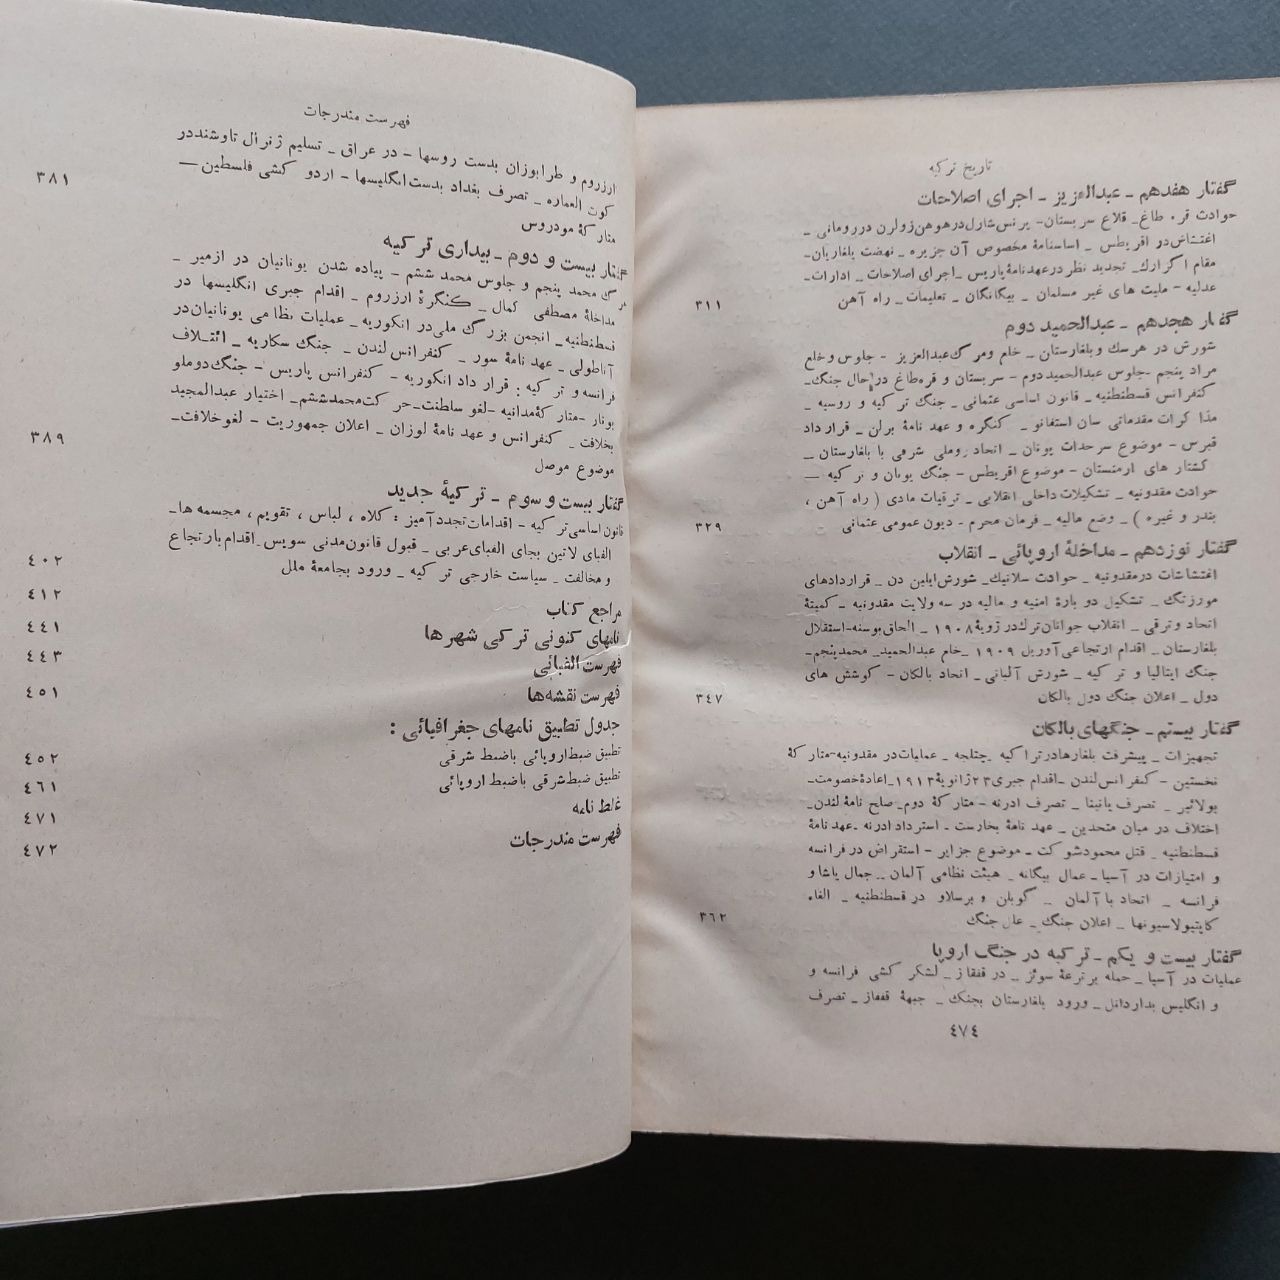 تاریخ ترکیه
گفتار هفدهم ـ عبدالعزیز ـ اجرای اصلاحات
حوادث قره طاغ ـ قلاع سربستان ـ پرنس شارل در هوهن زولرن در رومانی ـ
اغتشاش در اقریطس ـ اساسنامهٔ مخصوص آن جزیره ـ نهضت بلغاریان ـ
مقام اگزارك ـ تجدید نظر در عهدنامهٔ پاریس ـ اجرای اصلاحات ـ ادارات ـ
عدلیه ـ ملیت های غیر مسلمان ـ بیگانگان ـ تعلیمات ـ راه آهن ۳۱۱
گفتار هجدهم ـ عبدالحمید دوم
شورش در هرسك و بلغارستان ـ خلع و مرگ عبدالعزیز ـ جلوس و خلع
مراد پنجم ـ جلوس عبدالحمید دوم ـ سربستان و قره طاغ در حال جنگ ـ
کنفرانس قسطنطنیه ـ قانون اساسی عثمانی ـ جنگ ترکیه و روسیه ـ
مذاکرات مقدماتی سان استفانو ـ کنگره و عهد نامهٔ برلن ـ قرار داد
قبرس ـ موضوع سرحدات یونان ـ اتحاد روملی شرقی با بلغارستان ـ
کشتار های ارمنستان ـ موضوع اقریطس ـ جنگ یونان و ترکیه ـ
حوادث مقدونیه ـ تشکیلات داخلی انقلابی ـ ترقیات مادی ( راه آهن ،
بندر و غیره ) ـ وضع مالیه ـ فرمان محرم ـ دیون عمومی عثمانی ۳۲۹
گفتار نوزدهم ـ مداخلهٔ اروپائی ـ انقلاب
اغتشاشات در مقدونیه ـ حوادث سلانیك ـ شورش ایلین دن ـ قراردادهای
مورزتگ ـ تشکیل دو بارهٔ امنیه و مالیه در سه ولایت مقدونیه ـ کمیتهٔ
اتحاد و ترقی ـ انقلاب جوانان ترك در ژویهٔ ۱۹۰۸ ـ الحاق بوسنه ـ استقلال
بلغارستان ـ اقدام ارتجاعی آوریل ۱۹۰۹ ـ خلع عبدالحمید ـ محمد پنجم ـ
جنگ ایتالیا و ترکیه ـ شورش آلبانی ـ اتحاد بالکان ـ کوشش های
دول ـ اعلان جنگ دول بالکان ۳۴۷
گفتار بیستم ـ جنگهای بالکان
تجهیزات ـ پیشرفت بلغارها در تراکیه ـ چتلجه ـ عملیات در مقدونیه ـ متارکهٔ
نخستین ـ کنفرانس لندن ـ اقدام جبری ۲۳ ژانویهٔ ۱۹۱۳ ـ اعادهٔ خصومت ـ
بولائیر ـ تصرف یانینا ـ تصرف ادرنه ـ متارکهٔ دوم ـ صلح نامهٔ لندن ـ
اختلاف در میان متحدین ـ عهد نامهٔ بخارست ـ استرداد ادرنه ـ عهد نامهٔ
قسطنطنیه ـ قتل محمود شوکت ـ موضوع جزایر ـ استقراض در فرانسه
و امتیازات در آسیا ـ عمال بیگانه ـ هیئت نظامی آلمان ـ جمال پاشا و
فرانسه ـ اتحاد با آلمان ـ گوبان و برسلاو در قسطنطنیه ـ الغاء
کاپیتولاسیونها ـ اعلان جنگ ـ علل جنگ ۳۶۲
گفتار بیست و یکم ـ ترکیه در جنگ اروپا
عملیات در آسیا ـ حمله بر ترعهٔ سوئز ـ در قفقاز ـ لشکر کشی فرانسه و
و انگلیس بداردانل ـ ورود بلغارستان بجنگ ـ جبههٔ قفقاز ـ تصرف
۴۷۴
فهرست مندرجات
ارزروم و طرابوزان بدست روسها ـ در عراق ـ تسلیم ژنرال تاوشند در
کوت العماره ـ تصرف بغداد بدست انگلیسها ـ اردو کشی فلسطین ـ
متارکهٔ مودروس ۳۸۱
گفتار بیست و دوم ـ بیداری ترکیه
مرگ محمد پنجم و جلوس محمد ششم ـ پیاده شدن یونانیان در ازمیر ـ
مداخلهٔ مصطفی کمال ـ کنگرهٔ ارزروم ـ اقدام جبری انگلیسها در
قسطنطنیه ـ انجمن بزرگ ملی در انکوریه ـ عملیات نظامی یونانیان در
آناطولی ـ عهد نامهٔ سور ـ کنفرانس لندن ـ جنگ سکاریه ـ ائتلاف
فرانسه و ترکیه : قرار داد انکوریه ـ کنفرانس پاریس ـ جنگ دوملو
بونار ـ متارکهٔ مدانیه ـ لغو سلطنت ـ حرکت محمد ششم ـ اختیار عبدالمجید
بخلافت ـ کنفرانس و عهد نامهٔ لوزان ـ اعلان جمهوریت ـ لغو خلافت ـ
موضوع موصل ۳۸۹
گفتار بیست و سوم ـ ترکیهٔ جدید
قانون اساسی ترکیه ـ اقدامات تجدد آمیز : کلاه ، لباس ، تقویم ، مجسمه ها ـ
الفبای لاتین بجای الفبای عربی ـ قبول قانون مدنی سویس ـ اقدام بارتجاع
و مخالفت ـ سیاست خارجی ترکیه ـ ورود بجامعهٔ ملل ۴۰۲
مراجع کتاب ۴۱۲
نامهای کنونی ترکی شهرها ۴۴۱
فهرست الفبائی ۴۴۳
فهرست نقشه‌ها ۴۵۱
جدول تطبیق نامهای جغرافیائی :
تطبیق ضبط اروپائی با ضبط شرقی ۴۵۲
تطبیق ضبط شرقی با ضبط اروپائی ۴۶۱
غلط نامه ۴۷۱
فهرست مندرجات ۴۷۲